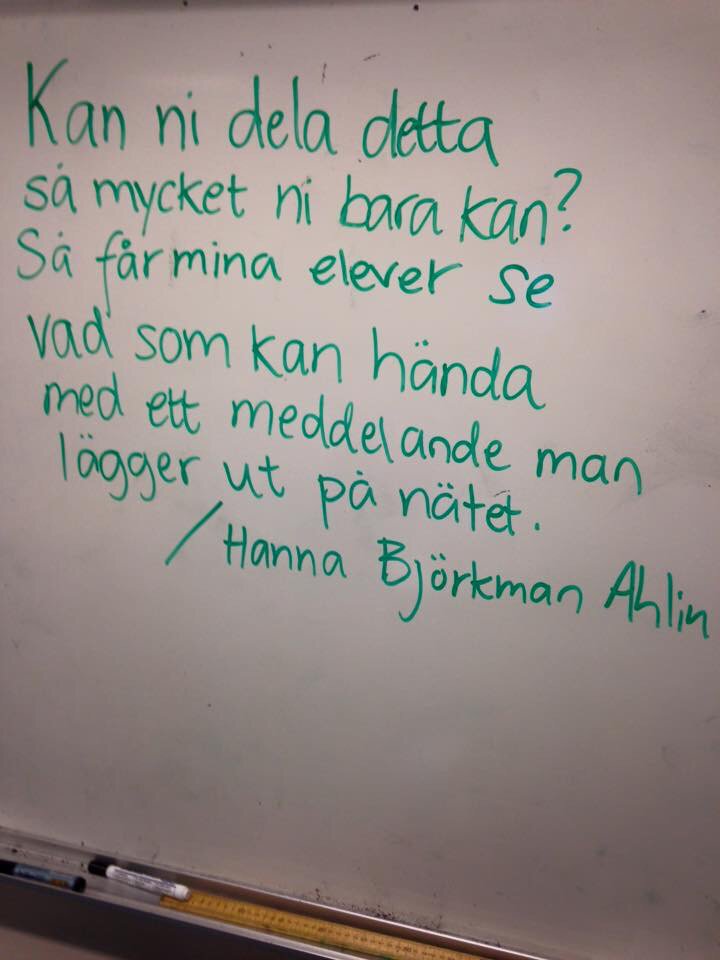 Kan ni dela detta
så mycket ni bara kan?
Så får mina elever se
vad som kan hända
med ett meddelande man
lägger ut på nätet.
/Hanna Björkman Ahlin